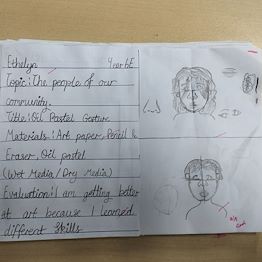 Ethelyn Year 6E
Topic: The people of our
community.
Title: Oil Pastel Gesture
Materials: Art paper, Pencil &
Eraser, Oil pastel
(Wet Media / Dry Media)
Evaluation: I am getting better
at art because I learned
different skills